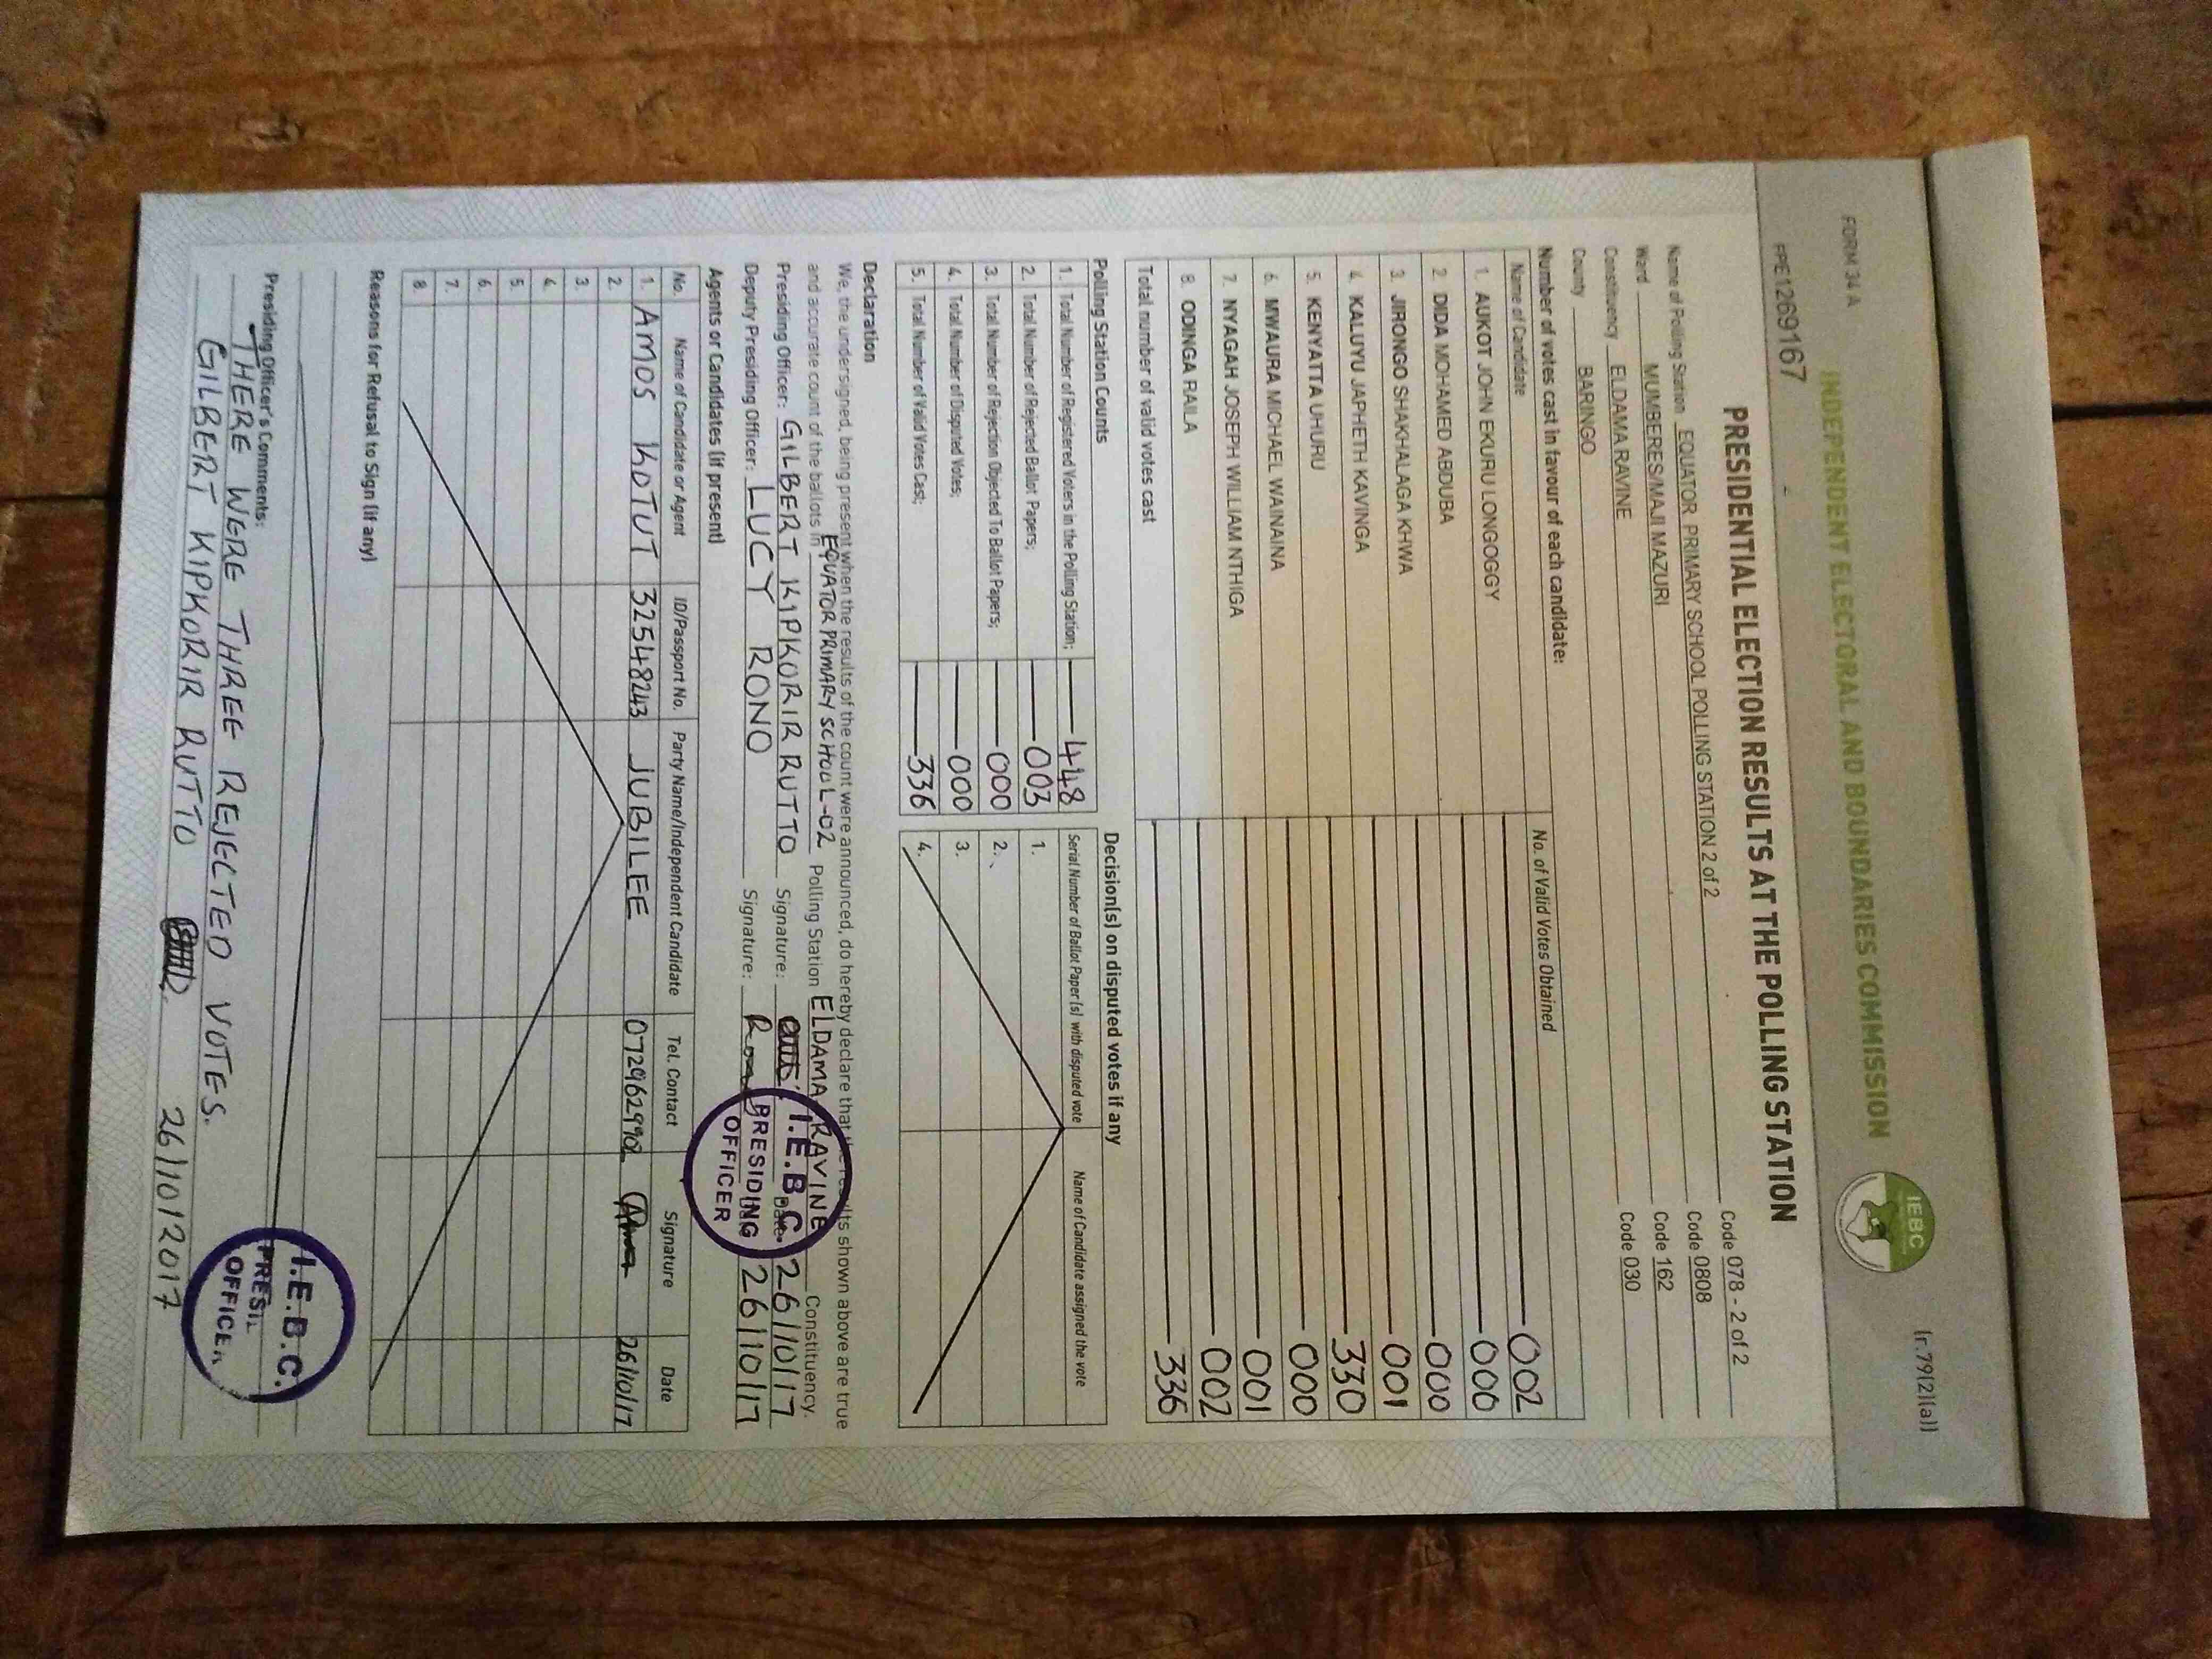 FORM 34 A
(r.79(2)(a))
INDEPENDENT ELECTORAL AND BOUNDARIES COMMISSION
IEBC
FPE1269167
PRESIDENTIAL ELECTION RESULTS AT THE POLLING STATION
Name of Polling Station EQUATOR PRIMARY SCHOOL POLLING STATION 2 of 2 Code 078 - 2 of 2
Ward MUMBERES/MAJI MAZURI Code 0808
Constituency ELDAMA RAVINE Code 162
County BARINGO Code 030
Number of votes cast in favour of each candidate:
Name of Candidate No. of Valid Votes Obtained
1. AUKOT JOHN EKURU LONGOGGY 002
2. DIDA MOHAMED ABDUBA 000
3. JIRONGO SHAKHALAGA KHWA 000
4. KALUYU JAPHETH KAVINGA 001
5. KENYATTA UHURU 330
6. MWAURA MICHAEL WAINAINA 000
7. NYAGAH JOSEPH WILLIAM NTHIGA 001
8. ODINGA RAILA 002
Total number of valid votes cast 336
Polling Station Counts
1. Total Number of Registered Voters in the Polling Station; 448
2. Total Number of Rejected Ballot Papers; 003
3. Total Number of Rejection Objected To Ballot Papers; 000
4. Total Number of Disputed Votes; 000
5. Total Number of Valid Votes Cast; 336
Decision(s) on disputed votes if any
Serial Number of Ballot Paper(s) with disputed vote Name of Candidate assigned the vote
1.
2.
3.
4.
Declaration
We, the undersigned, being present when the results of the count were announced, do hereby declare that the results shown above are true
and accurate count of the ballots in EQUATOR PRIMARY SCHOOL-02 Polling Station ELDAMA RAVINE Constituency.
Presiding Officer: GILBERT KIPKORIR RUTTO Signature: Date: 26/10/17
Deputy Presiding Officer: LUCY RONO Signature: Rono 26/10/17
I.E.B.C
PRESIDING
OFFICER
Agents or Candidates (if present)
No. Name of Candidate or Agent ID/Passport No. Party Name/Independent Candidate Tel. Contact Signature Date
1. AMOS KOTUT 32548243 JUBILEE 0729629902 26/10/17
2.
3.
4.
5.
6.
7.
8.
Reasons for Refusal to Sign (if any)
Presiding Officer's Comments:
THERE WERE THREE REJECTED VOTES.
GILBERT KIPKORIR RUTTO 26/10/2017
I.E.B.C.
OFFICER